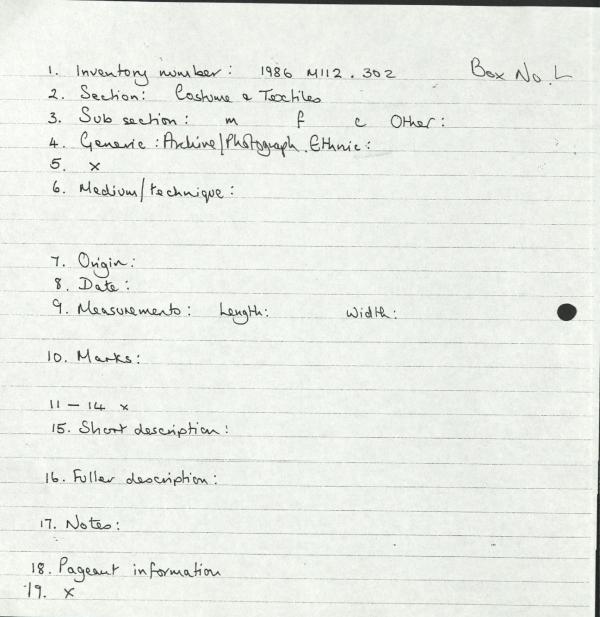 1. Inventory number: 1986 M112.302 Box No. L
2. Section: Costume & Textiles
3. Sub section: m f c Other:
4. Generic: Archive/Photograph. Ethnic:
5. x
6. Medium/technique:
7. Origin:
8. Date:
9. Measurements: Length: Width:
10. Marks:
11 – 14 x
15. Short description:
16. Fuller description:
17. Notes:
18. Pageant information
19. x